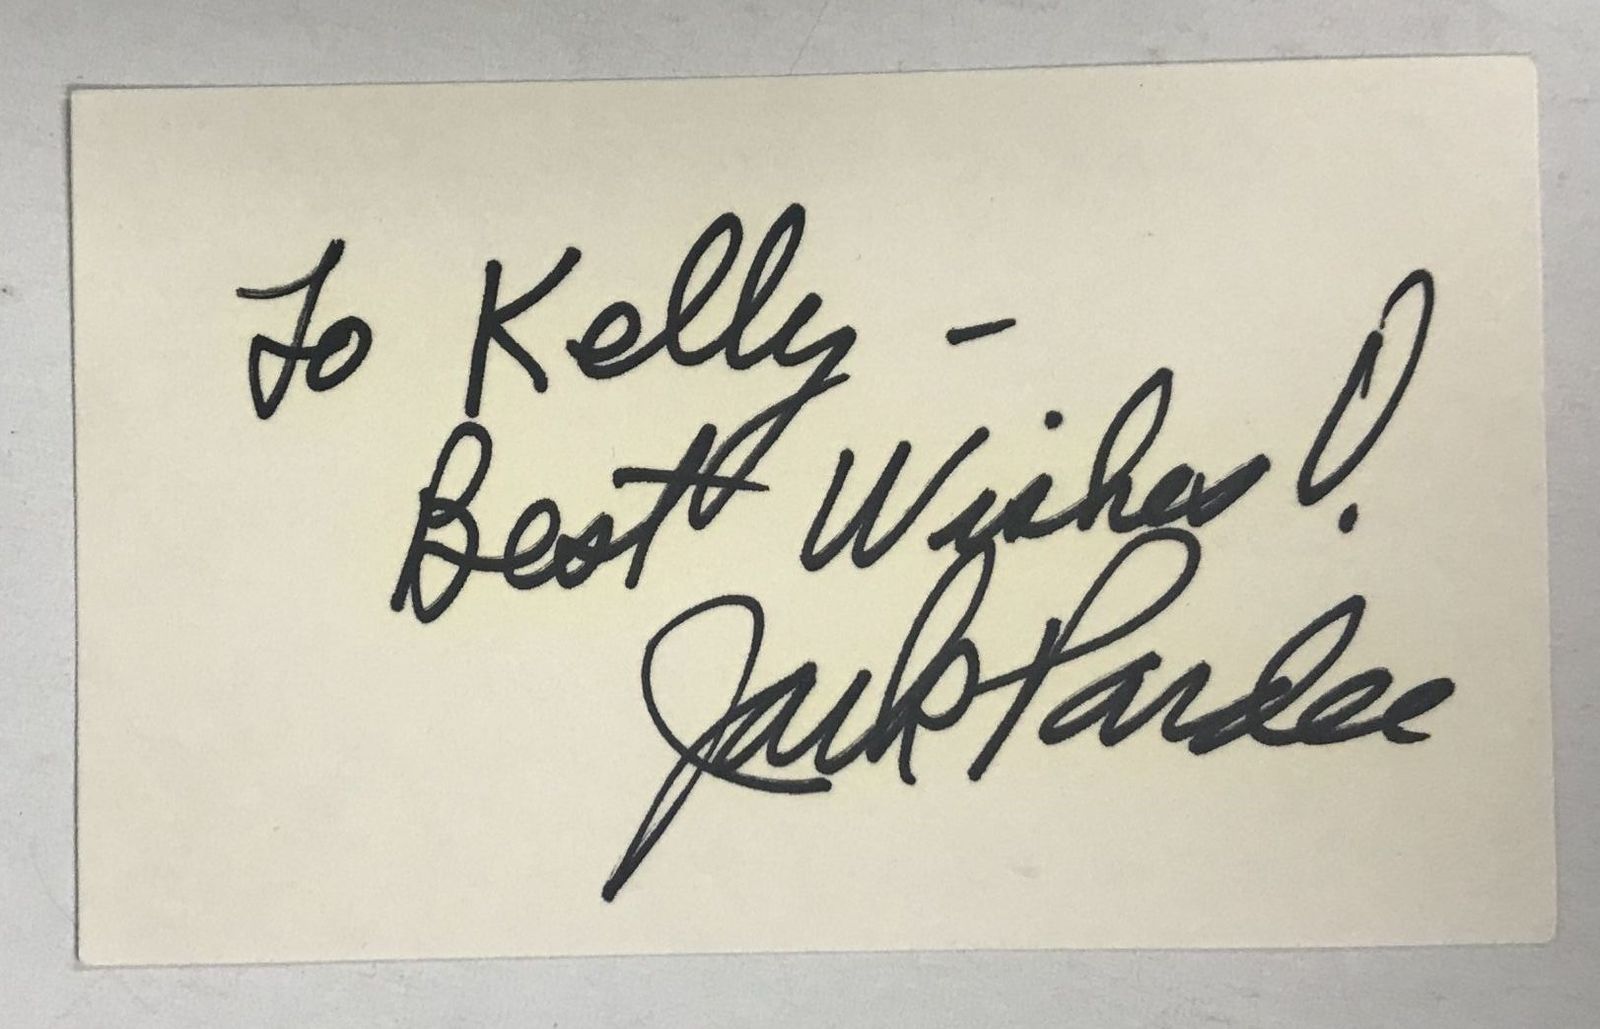 To Kelly -
Best Wishes!
Jack Pardee